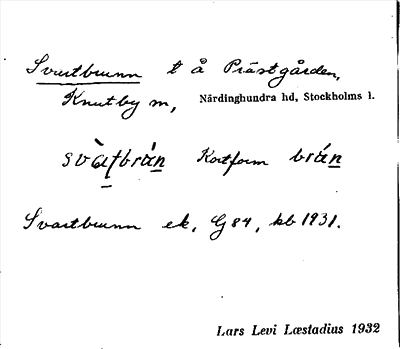 Svartbrunn t å Prästgården,
Knutby sn, Närdinghundra hd, Stockholms l.
Kortform brán
Svartbrunn ek, G 84, kb 1931.
Lars Levi Læstadius 1932